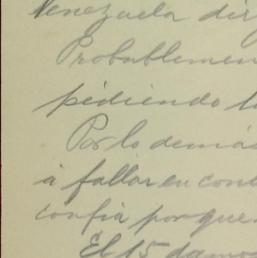 Venezuela dir
Probablemen
pidiendo l
Por lo demás
á fallar en con
confia porque
El 15 damos